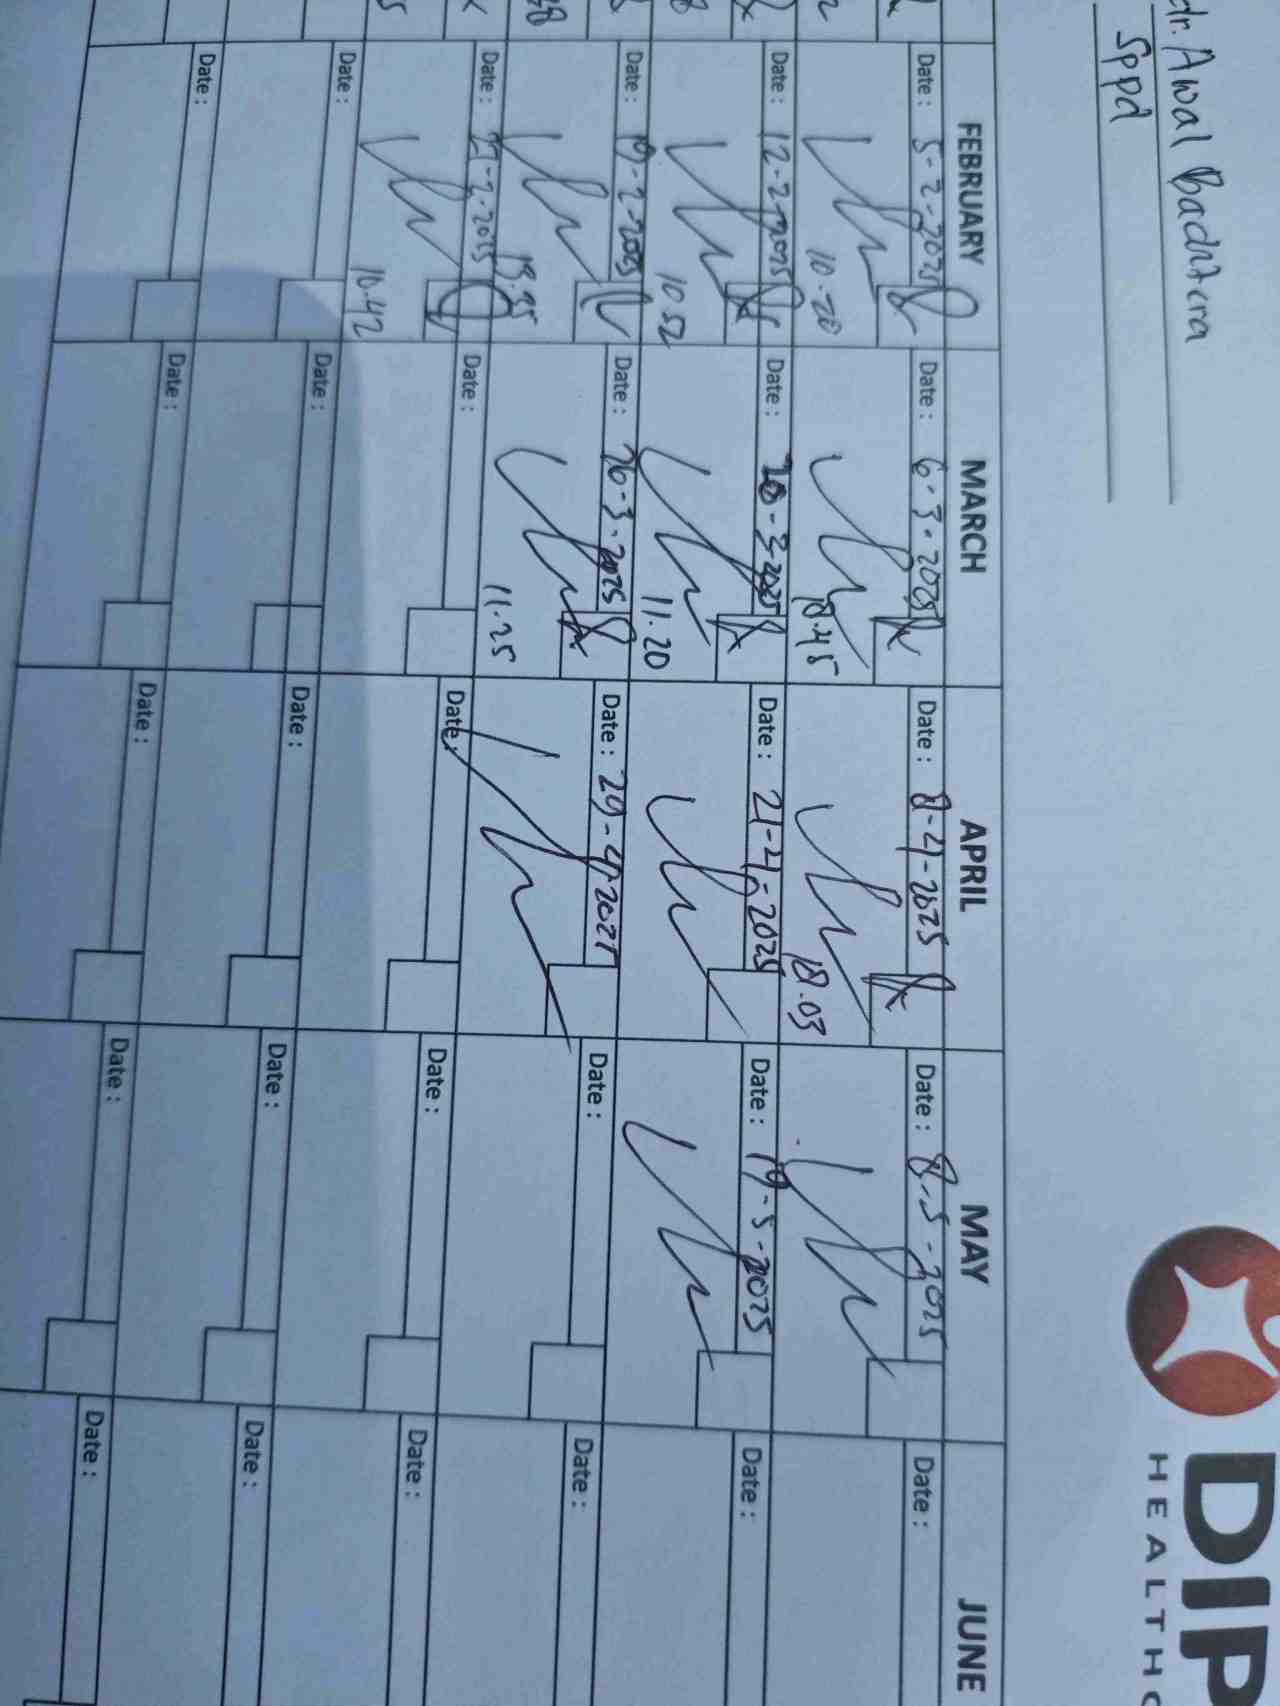 dr. Awal Badntara
Sppd
DIP
HEALTHC
FEBRUARY MARCH APRIL MAY JUNE
Date : 5-2-2025 Date : 6-3-2025 Date : 8-4-2025 Date : 8-5-2025 Date :
10.20 18.45 18.03
Date : 12-2-2025 Date : 20-3-2025 Date : 21-4-2025 Date : 19-5-2025 Date :
10.52 11.20
Date : 19-2-2025 Date : 26-3-2025 Date : 29-4-2025 Date : Date :
11.25
Date : 27-2-2025 Date : Date : Date : Date :
10.42
Date : Date : Date : Date : Date :
Date : Date : Date : Date : Date :